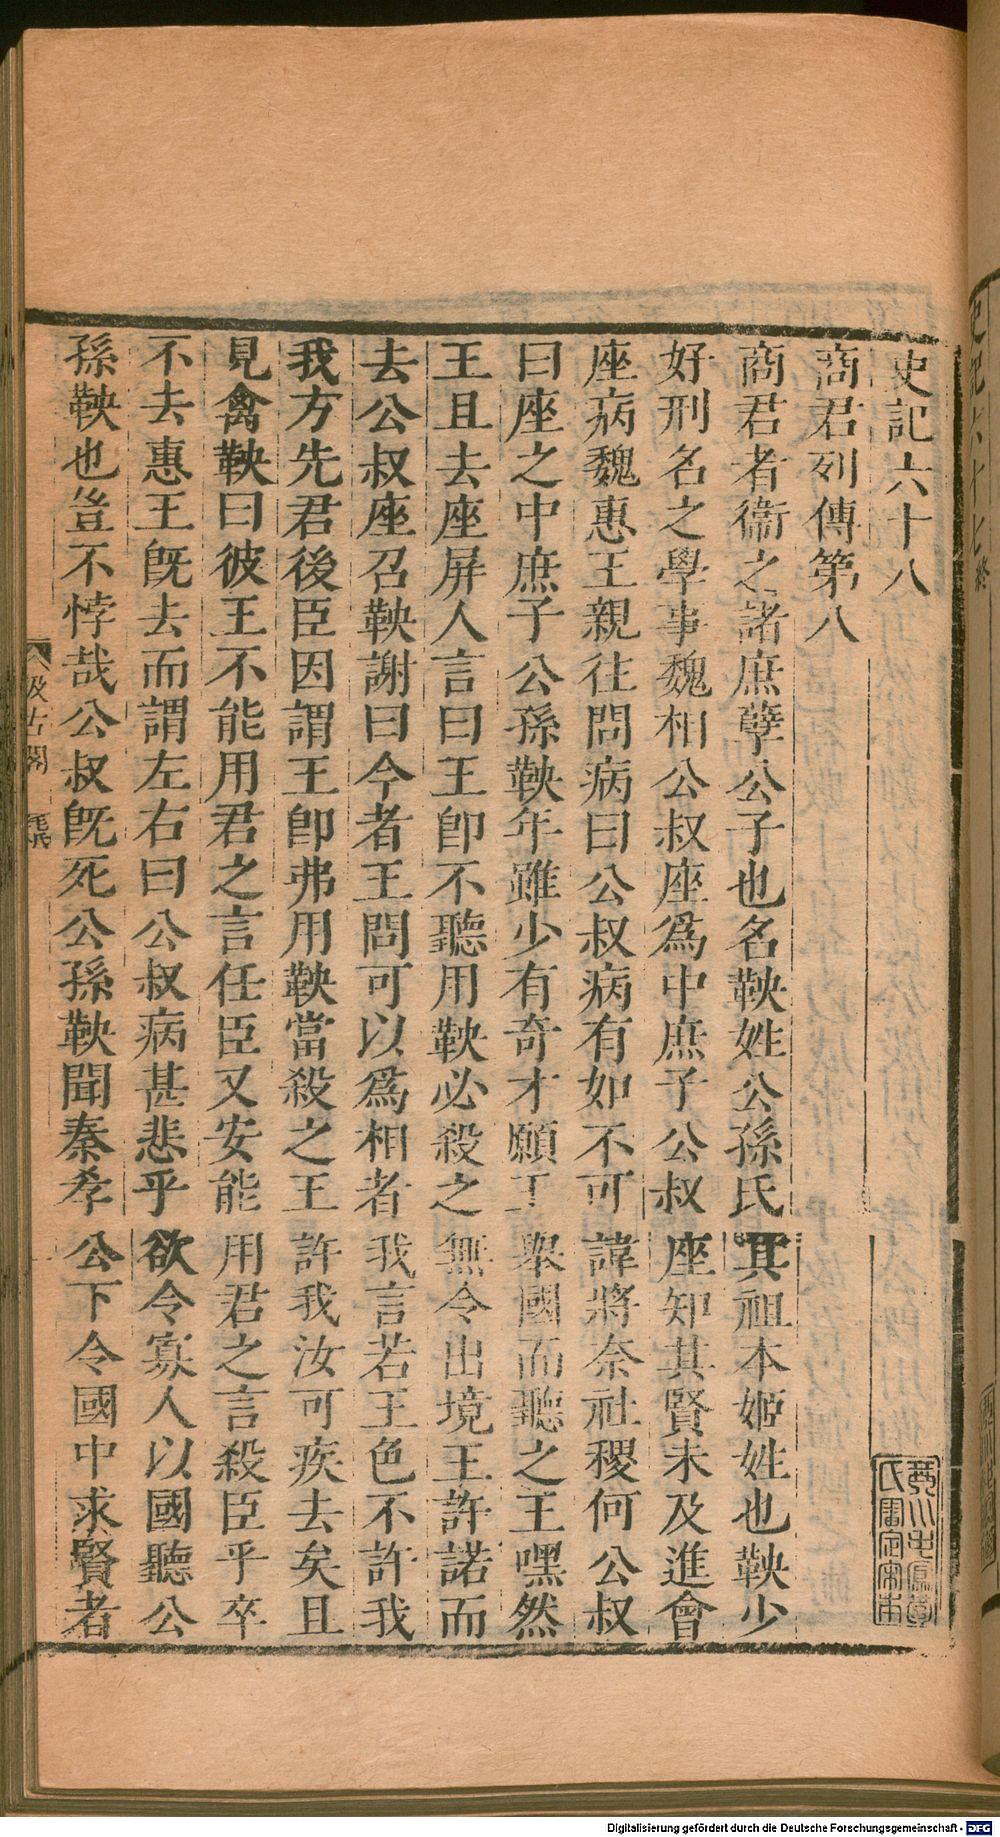 史記六十八
商君列傳第八
商君者衞之諸庶孽公子也名鞅姓公孫氏其祖本姬姓也鞅少
好刑名之學事魏相公叔座爲中庶子公叔座知其賢未及進會
座病魏惠王親往問病曰公叔病有如不可諱將奈社稷何公叔
曰座之中庶子公孫鞅年雖少有奇才願王舉國而聽之王嘿然
王且去座屏人言曰王卽不聽用鞅必殺之無令出境王許諾而
去公叔座召鞅謝曰今者王問可以爲相者我言若王色不許我
我方先君後臣因謂王卽弗用鞅當殺之王許我汝可疾去矣且
見禽鞅曰彼王不能用君之言任臣又安能用君之言殺臣乎卒
不去惠王旣去而謂左右曰公叔病甚悲乎欲令寡人以國聽公
孫鞅也豈不悖哉公叔旣死公孫鞅聞秦孝公下令國中求賢者
汲古閣
毛氏
Digitalisierung gefördert durch die Deutsche Forschungsgemeinschaft - DFG